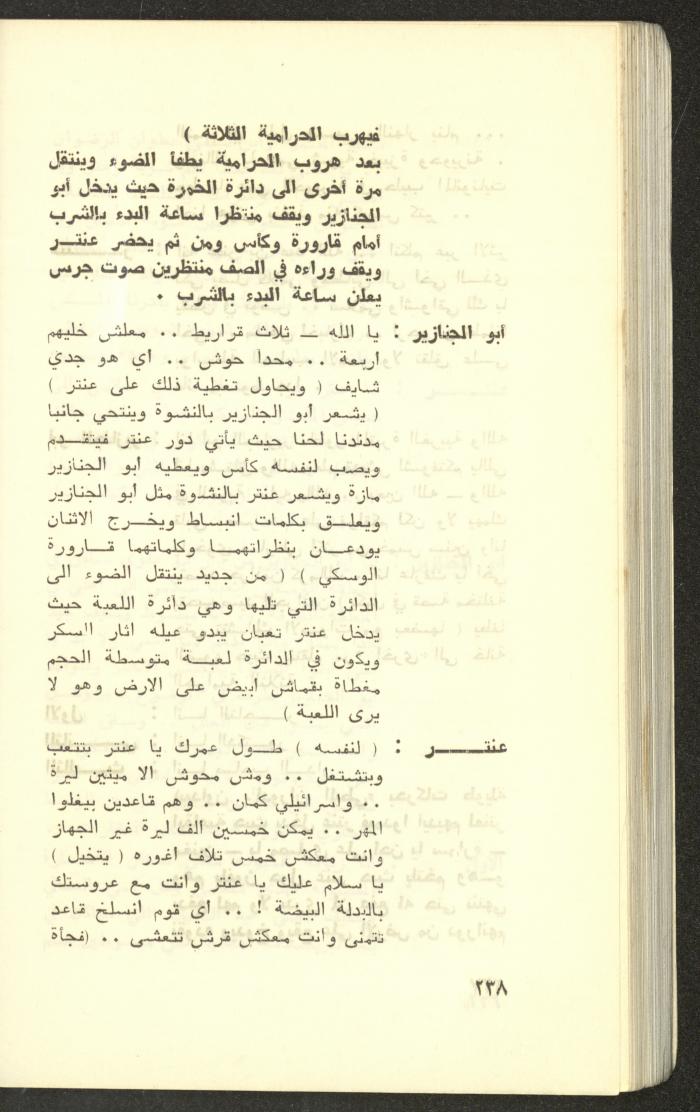 فيهرب الحرامية الثلاثة )
بعد هروب الحرامية يطفأ الضوء وينتقل
مرة أخرى الى دائرة الخمرة حيث يدخل أبو
الجنازير ويقف منتظرا ساعة البدء بالشرب
أمام قارورة وكأس ومن ثم يحضر عنتـــر
ويقف وراءه في الصف منتظرين صوت جرس
يعلن ساعة البدء بالشرب .
أبو الجنازير : يا الله ــ ثلاث قراريط .. معلش خليهم
اربعة .. محدا حوش .. اي هو جدي
شايف ( ويحاول تغطية ذلك على عنتر )
( يشعر ابو الجنازير بالنشوة وينتحي جانبا
مدندنا لحنا حيث يأتي دور عنتر فيتقـــدم
ويصب لنفسه كأس ويعطيه ابو الجنازير
مازة ويشعر عنتر بالنشوة مثل ابو الجنازير
ويعلــق بكلمات انبساط ويخـــرج الاثنان
يودعـــان بنظراتهمـــا وكلماتهما قـــارورة
الوسكي ) ( من جديد ينتقل الضوء الى
الدائرة التي تليها وهي دائرة اللعبة حيث
يدخل عنتر تعبان يبدو عيله اثار السكر
ويكون في الدائرة لعبـــة متوسطة الحجم
مغطاة بقماش ابيض على الارض وهو لا
يرى اللعبة )
عنتـــــر : ( لنفسه ) طــول عمرك يا عنتر بتتعب
وبتشتغل .. ومش محوش الا ميتين ليرة
.. واسرائيلي كمان .. وهم قاعدين بيغلوا
المهر .. يمكن خمسين الف ليرة غير الجهاز
وانت معكش خمس تلاف اغوره ( يتخيل )
يا سلام عليك يا عنتر وانت مع عروستك
بالبدلة البيضة ! .. اي قوم انسلخ قاعد
تتمنى وانت معكش قرش تتعشى .. (فجأة
٢٣٨